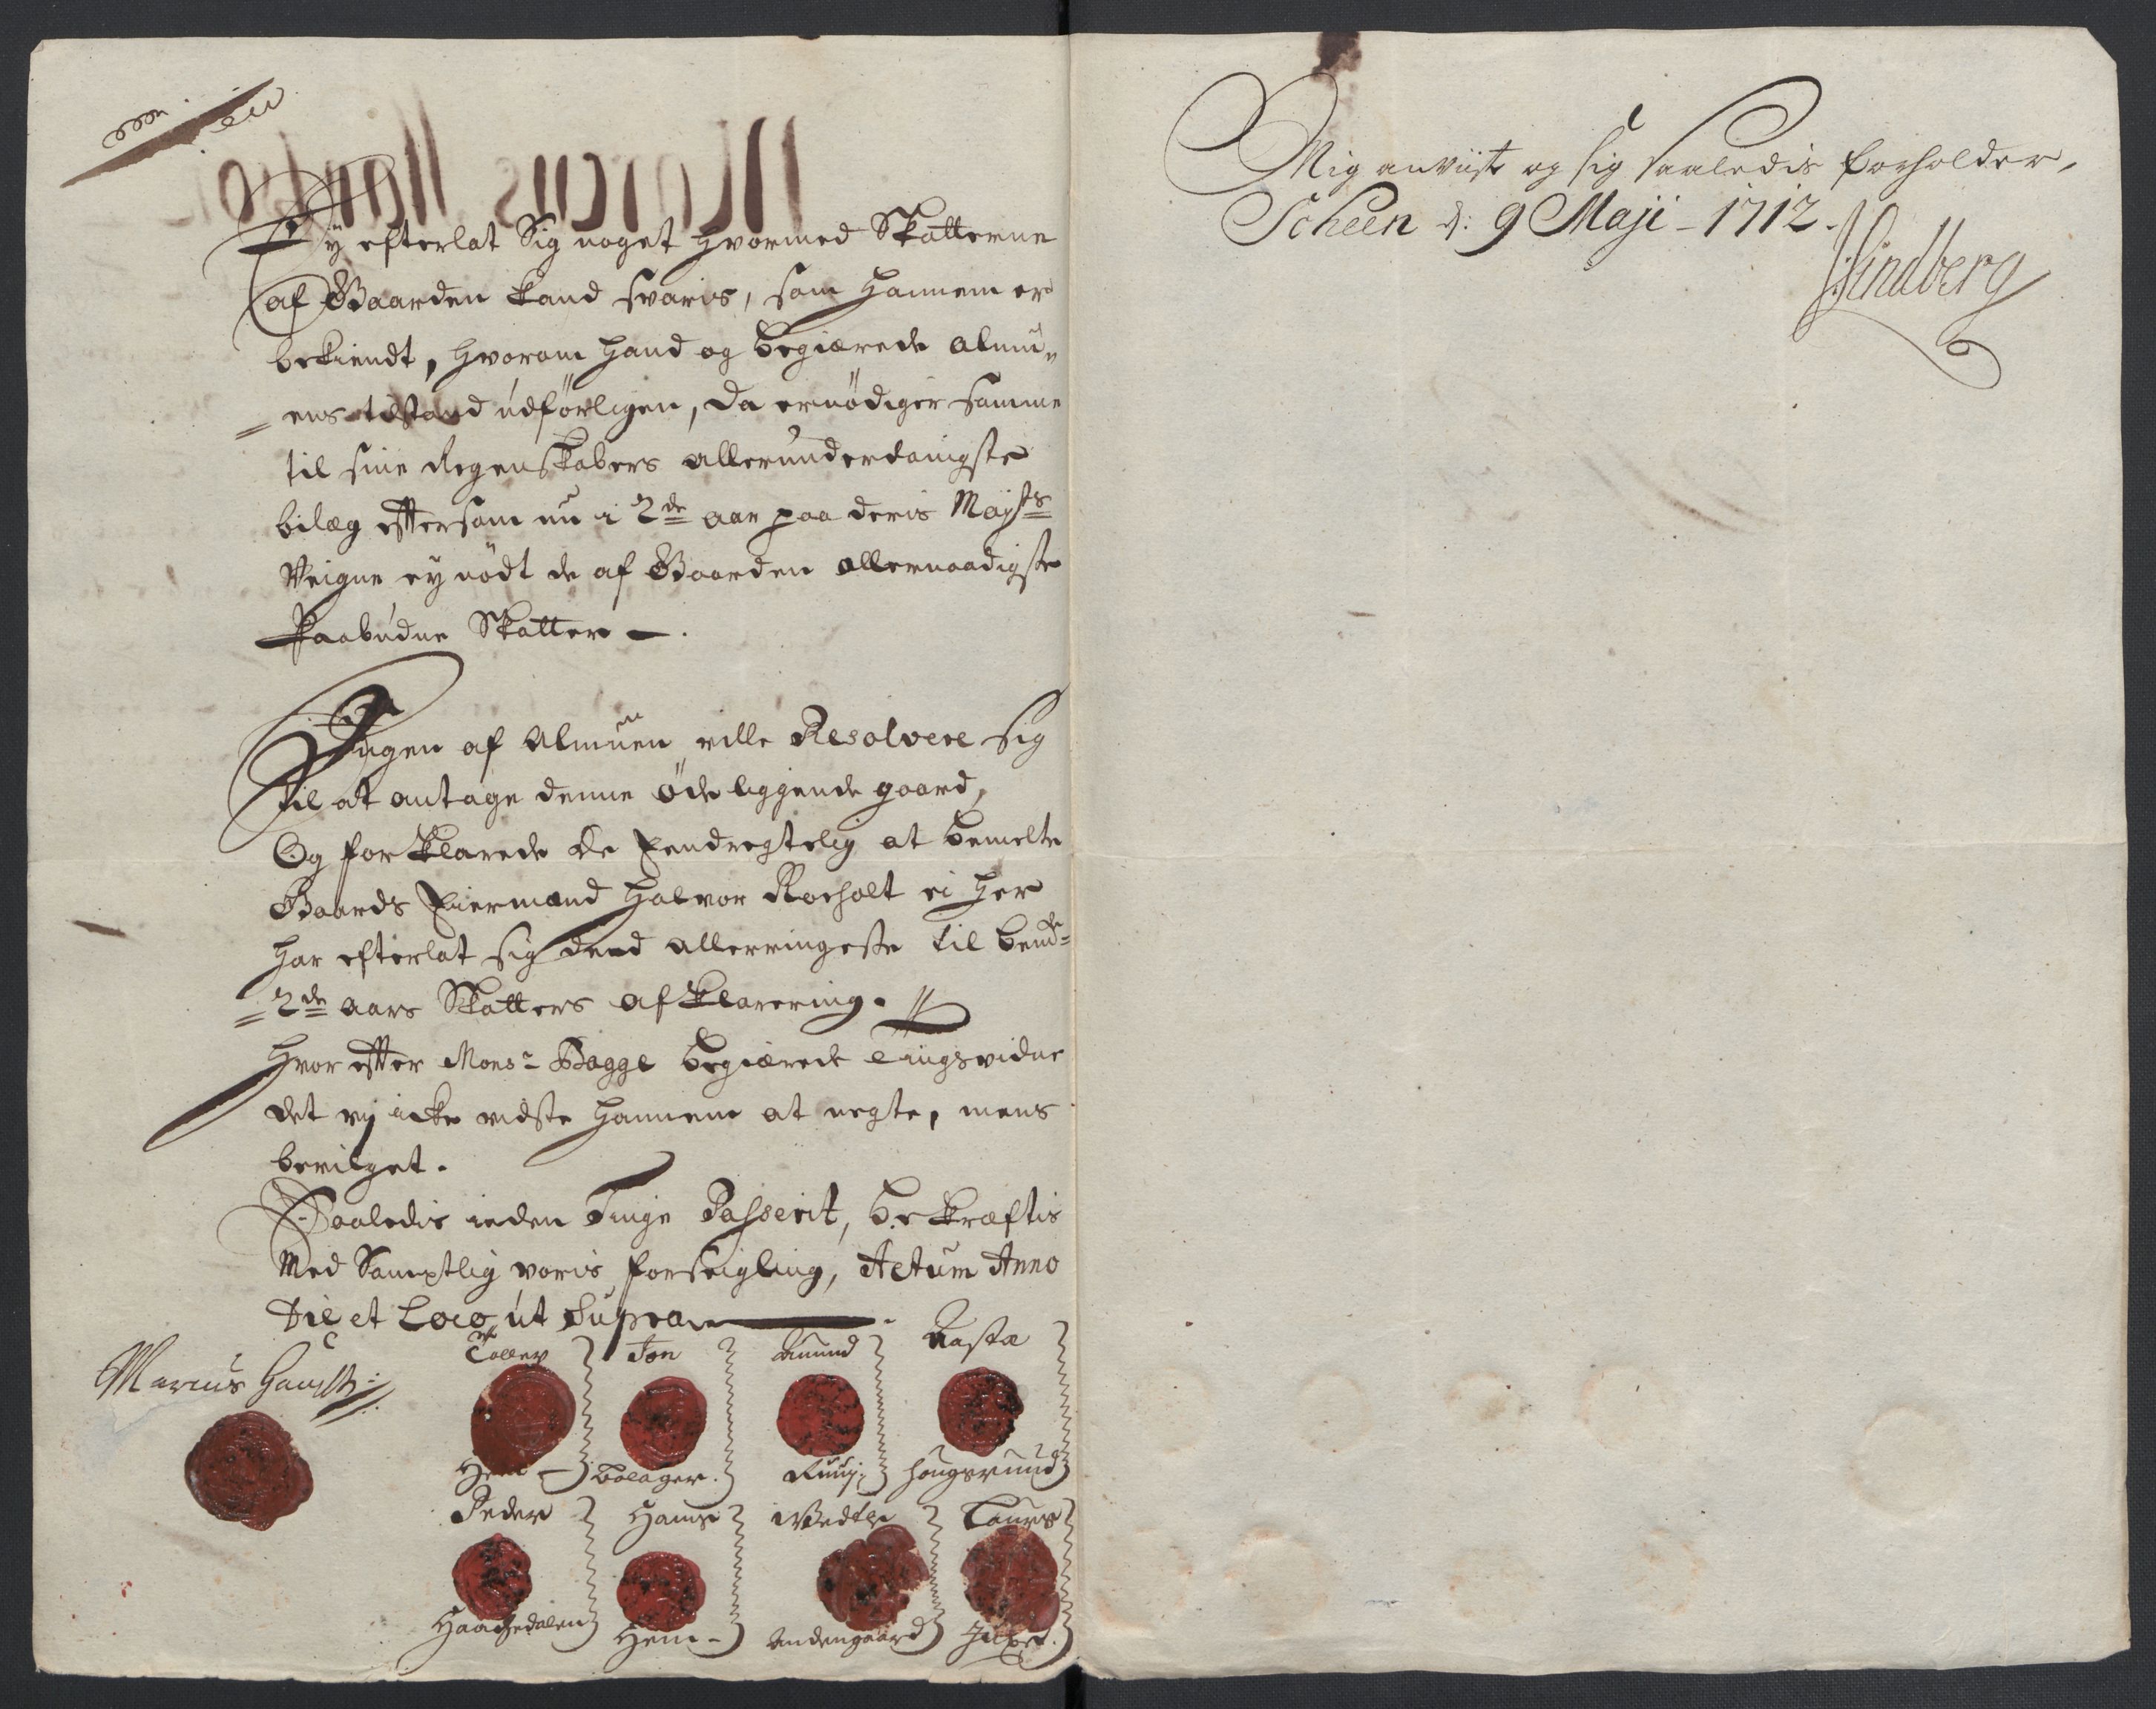 Ey efterlat Sig noget hvormed Skatterne
af Gaarden kand svaris, som hannem er
bekiendt, hvorom hand og begiærede almu=
=ens tilstand udførligen, da ernødiger samme
til sine Regenskabers allerunderdanigste
bilæg eftersom nu i 2de aar paa deris Mayts
Veigne ey nødt de af Gaarden allernaadigste
Paabudne Skatter —.
Ingen af Almuen ville Resolvere sig
til at antage denne øde liggende gaard,
Og forklarede de Eendregtelig at bemelte
Gaards Eiermand Halvor Roeholt ei her
har efterlat sig deed allerringeste til bemte=
=2de aars Skatters afklarering.
Hvor efter Monsr Bagge begiærede tingsvidne
det vij icke vidste hannem at negte, mens
bevilget.
Saaledis inden Tinge Passerit, bekræftis
Med Samptlig voris forseigling, Actum Anno
Die et Loco ut Supra
Marcus Hans
Tollev Jon Amund Aasta
Hem Bolager. Ruug. Haugerund
Peder Hans Wedtle Laurs
Haatvedalen Hem – Andengaard
Mig anviist og sig saaledis forholder,
Scheen d: 9 Maji – 1712.
Lindberg